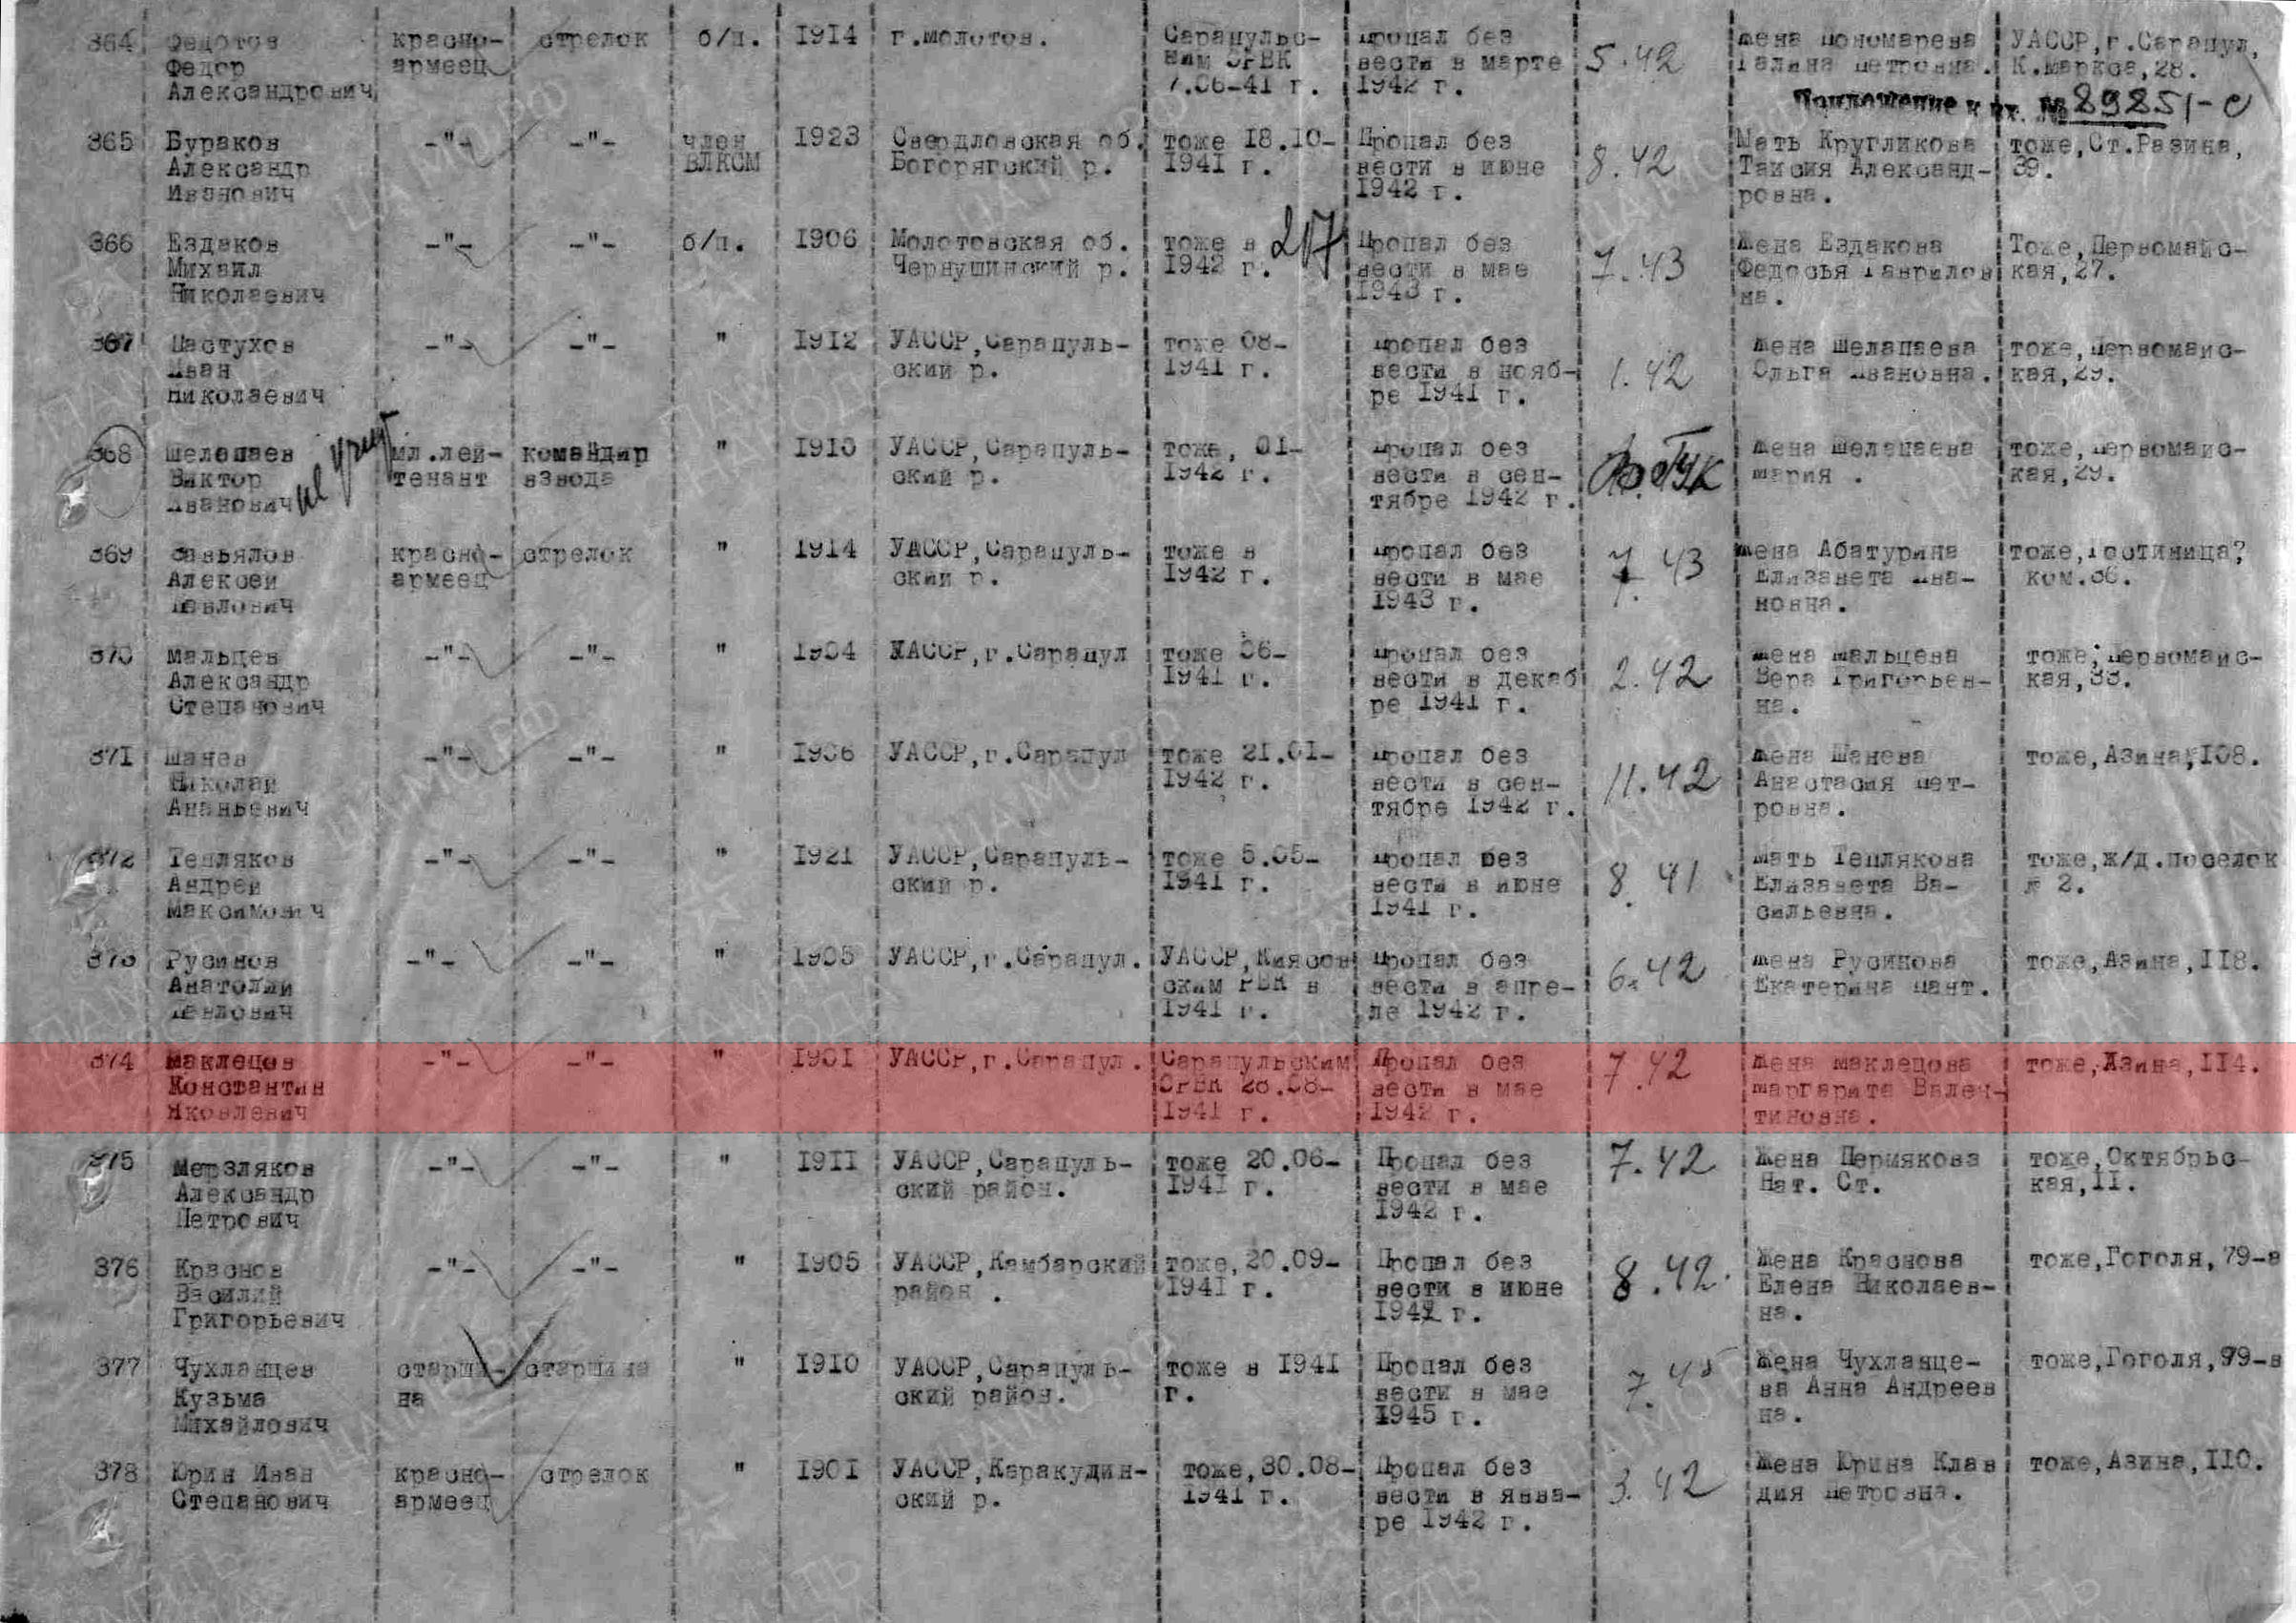 364 Федотов красно- стрелок б/п. 1914 г.Молотов. Сарапульс- Пропал без 5.42 Жена Пономарева УАССР,г.Сарапул,
Федор армеец ким ОРВК вести в марте Галина Петровна. К.Маркса,28.
Александрович 7.06-41 г. 1942 г.
Приложение к вх. № 89851-с
365 Бураков -"- -"- член 1923 Свердловская об. тоже 18.10- Пропал без 8.42 Мать Кругликова тоже,Ст.Разина,
Александр ВЛКСМ Богорягский р. 1941 г. вести в июне Таисия Александ- 39.
Иванович 1942 г. ровна.
366 Ездаков -"- -"- б/п. 1906 Молотовская об. тоже в 217 Пропал без 7.43 Жена Ездакова Тоже,Первомайс-
Михаил Чернушинский р. 1942 г. вести в мае Федосья Гаврилов кая,27.
Николаевич 1943 г. на.
367 Пастухов -"- -"- " 1912 УАССР,Сарапуль- тоже 08- Пропал без 1.42 Жена Шелапаева тоже,Первомайс-
Иван ский р. 1941 г. вести в нояб- Ольга Ивановна. кая,29.
Николаевич ре 1941 г.
368 Шелапаев мл.лей- командир " 1910 УАССР,Сарапуль- тоже, 01- Пропал без Жена Шелапаева тоже,Первомайс-
Виктор тенант взвода ский р. 1942 г. вести в сен- Мария . кая,29.
Иванович тябре 1942 г.
369 Завьялов красно- стрелок " 1914 УАССР,Сарапуль- тоже в Пропал без 7.43 Жена Абатурина тоже,Гостиница?
Алексей армеец ский р. 1942 г. вести в мае Елизавета Ива- ком.36.
Павлович 1943 г. новна.
370 Мальцев -"- -"- " 1904 УАССР,г.Сарапул тоже 06- Пропал без 2.42 Жена Мальцева тоже,Первомайс-
Александр 1941 г. вести в декаб Вера Григорьев- кая,33.
Степанович ре 1941 г. на.
371 Шанев -"- -"- " 1906 УАССР,г.Сарапул тоже 21.01- Пропал без 11.42 Жена Шанева тоже,Азина,108.
Николай 1942 г. вести в сен- Анастасия Пет-
Ананьевич тябре 1942 г. ровна.
372 Тепляков -"- -"- " 1921 УАССР,Сарапуль- тоже 5.05- Пропал без 8.41 Мать Теплякова тоже,ж/д.поселок
Андрей ский р. 1941 г. вести в июне Елизавета Ва- № 2.
Максимович 1941 г. сильевна.
373 Русинов -"- -"- " 1905 УАССР,г.Сарапул. УАССР,Киясов Пропал без 6.42 Жена Русинова тоже,Азина,118.
Анатолий ским РВК в вести в апре- Екатерина Пант.
Павлович 1941 г. ле 1942 г.
374 Маклецов -"- -"- " 1901 УАССР,г.Сарапул. Сарапульским Пропал без 7.42 Жена Маклецова тоже,Азина,114.
Константин ОРВК 28.08- вести в мае Маргарита Вален-
Яковлевич 1941 г. 1942 г. тиновна.
375 Мерзляков -"- -"- " 1911 УАССР,Сарапуль- тоже 20.06- Пропал без 7.42 Жена Пермякова тоже,Октябрьс-
Александр ский район. 1941 г. вести в мае Нат. Ст. кая,11.
Петрович 1942 г.
376 Краснов -"- -"- " 1905 УАССР,Камбарский тоже,20.09- Пропал без 8.42. Жена Краснова тоже,Гоголя,79-в
Василий район . 1941 г. вести в июне Елена Николаев-
Григорьевич 1942 г. на.
377 Чухланцев старши- старшина " 1910 УАССР,Сарапуль- тоже в 1941 Пропал без 7.45 Жена Чухланце- тоже,Гоголя,99-в
Кузьма на ский район. г. вести в мае ва Анна Андреев
Михайлович 1945 г. на.
378 Юрин Иван красно- стрелок " 1901 УАССР,Каракулин- тоже,30.08- Пропал без 3.42 Жена Юрина Клав тоже,Азина,110.
Степанович армеец ский р. 1941 г. вести в янва- дия Петровна.
ре 1942 г.